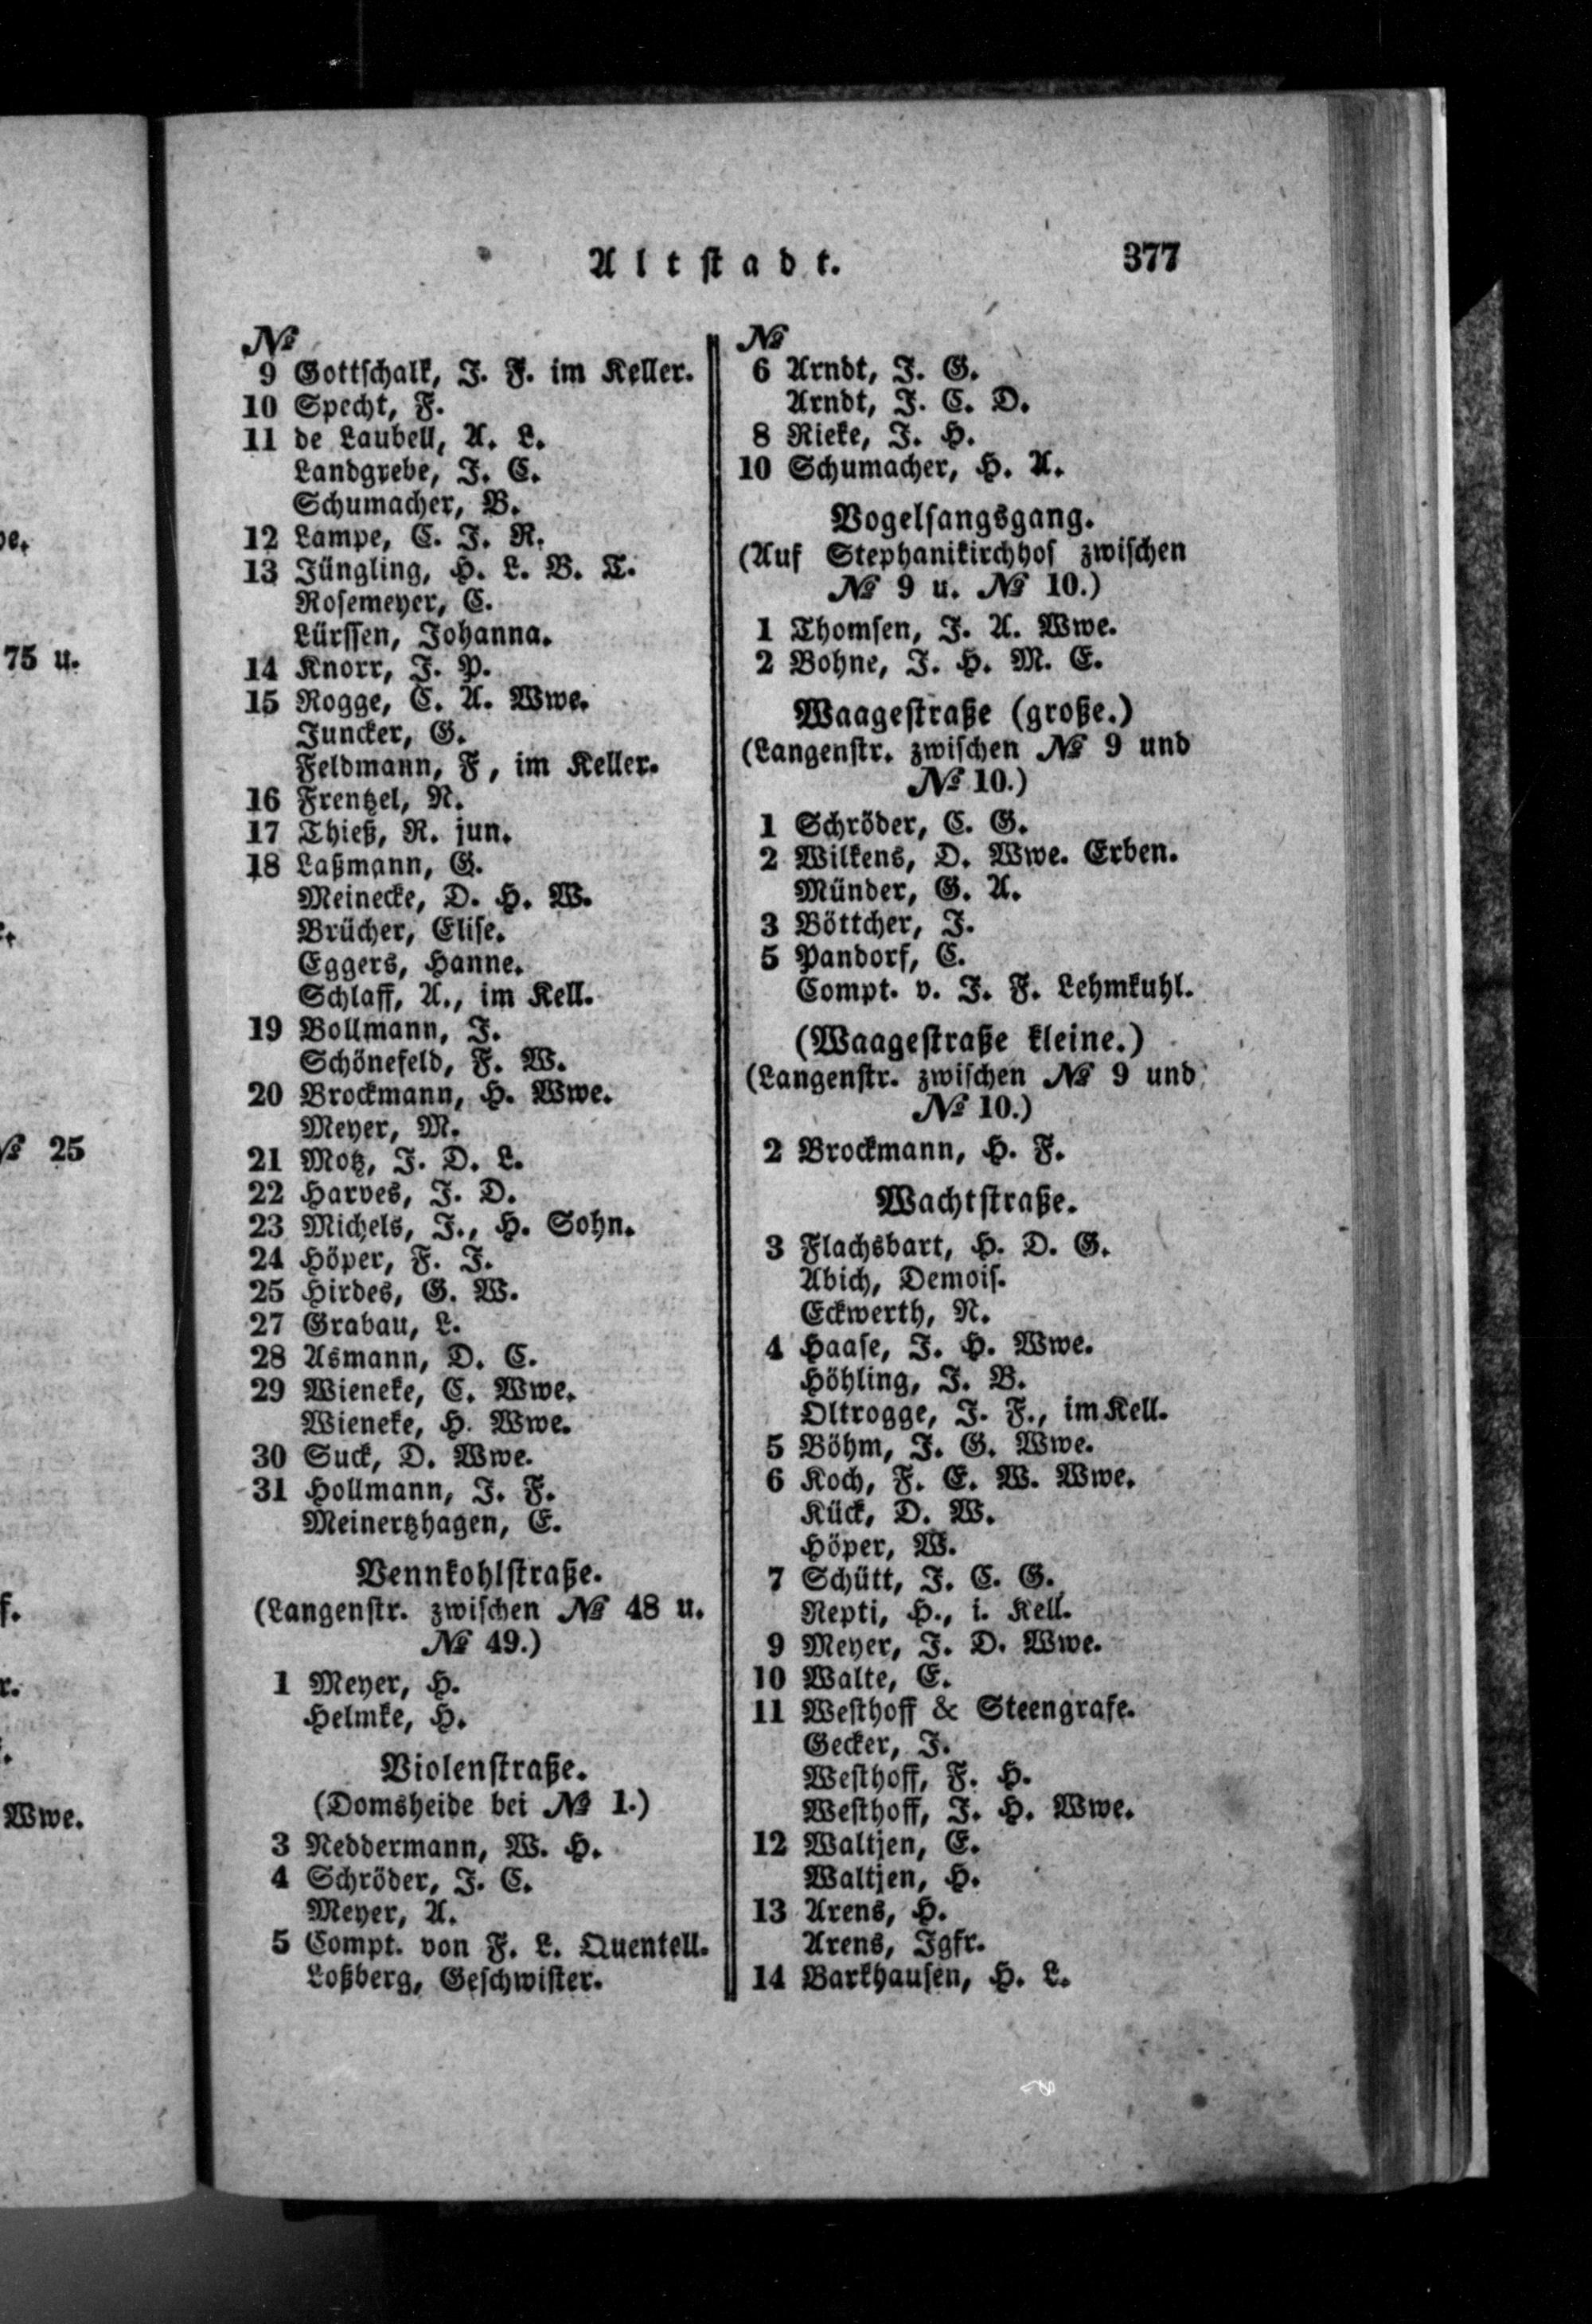 Altstadt. 377
№
9 Gottschalk, J. F. im Keller.
10 Specht, F.
11 de Laubell, A. L.
Landgrebe, J. C.
Schumacher, B.
12 Lampe, C. J. R.
13 Jüngling, H. L. B. T.
Rosemeyer, C.
Lürssen, Johanna.
14 Knorr, J. P.
15 Rogge, C. A. Wwe.
Juncker, G.
Feldmann, F, im Keller.
16 Frentzel, N.
17 Thieß, R. jun.
18 Laßmann, G.
Meinecke, D. H. W.
Brücher, Elise.
Eggers, Hanne.
Schlaff, A., im Kell.
19 Bollmann, J.
Schönefeld, F. W.
20 Brockmann, H. Wwe.
Meyer, M.
21 Motz, J. D. L.
22 Harves, J. D.
23 Michels, J., H. Sohn.
24 Höper, F. J.
25 Hirdes, G. W.
27 Grabau, L.
28 Asmann, D. C.
29 Wieneke, C. Wwe.
Wieneke, H. Wwe.
30 Suck, D. Wwe.
31 Hollmann, J. F.
Meinertzhagen, E.
Vennkohlstraße.
(Langenstr. zwischen № 48 u.
№ 49.)
1 Meyer, H.
Helmke, H.
Violenstraße.
(Domsheide bei № 1.)
3 Neddermann, W. H.
4 Schröder, J. C.
Meyer, A.
5 Compt. von F. L. Quentell.
Loßberg, Geschwister.
№
6 Arndt, J. G.
Arndt, J. C. D.
8 Rieke, J. H.
10 Schumacher, H. A.
Vogelsangsgang.
(Auf Stephanikirchhof zwischen
№ 9 u. № 10.)
1 Thomsen, J. A. Wwe.
2 Bohne, J. H. M. E.
Waagestraße (große.)
(Langenstr. zwischen № 9 und
№ 10.)
1 Schröder, C. G.
2 Wilkens, D. Wwe. Erben.
Münder, G. A.
3 Böttcher, J.
5 Pandorf, C.
Compt. v. J. F. Lehmkuhl.
(Waagestraße kleine.)
(Langenstr. zwischen № 9 und
№ 10.)
2 Brockmann, H. F.
Wachtstraße.
3 Flachsbart, H. D. G.
Abich, Demois.
Eckwerth, N.
4 Haase, J. H. Wwe.
Höhling, J. B.
Oltrogge, J. F., im Kell.
5 Böhm, J. G. Wwe.
6 Koch, F. E. W. Wwe.
Kück, D. W.
Höper, W.
7 Schütt, J. C. G.
Nepti, H., i. Kell.
9 Meyer, J. D. Wwe.
10 Walte, E.
11 Westhoff & Steengrafe.
Gecker, J.
Westhoff, F. H.
Westhoff, J. H. Wwe.
12 Waltjen, E.
Waltjen, H.
13 Arens, H.
Arens, Jgfr.
14 Barkhausen, H. L.
75 u.
№ 25
Wwe.